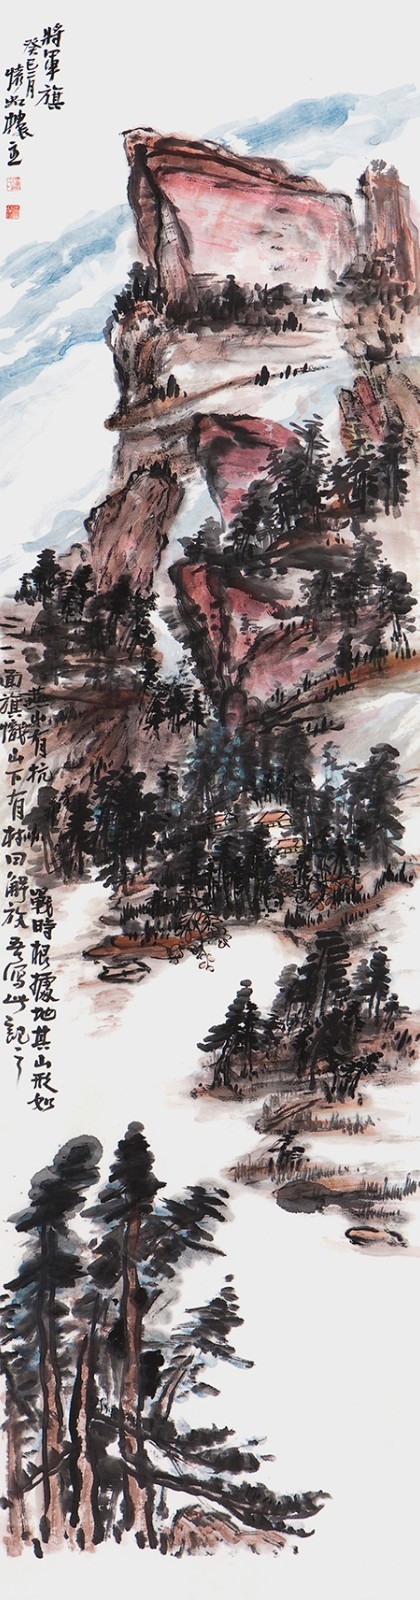 將軍旗
癸巳二月
懷虹樓主
燕山有抗
戰時根據地其山形如
一面旗幟山下有村曰解放吾寫此記之